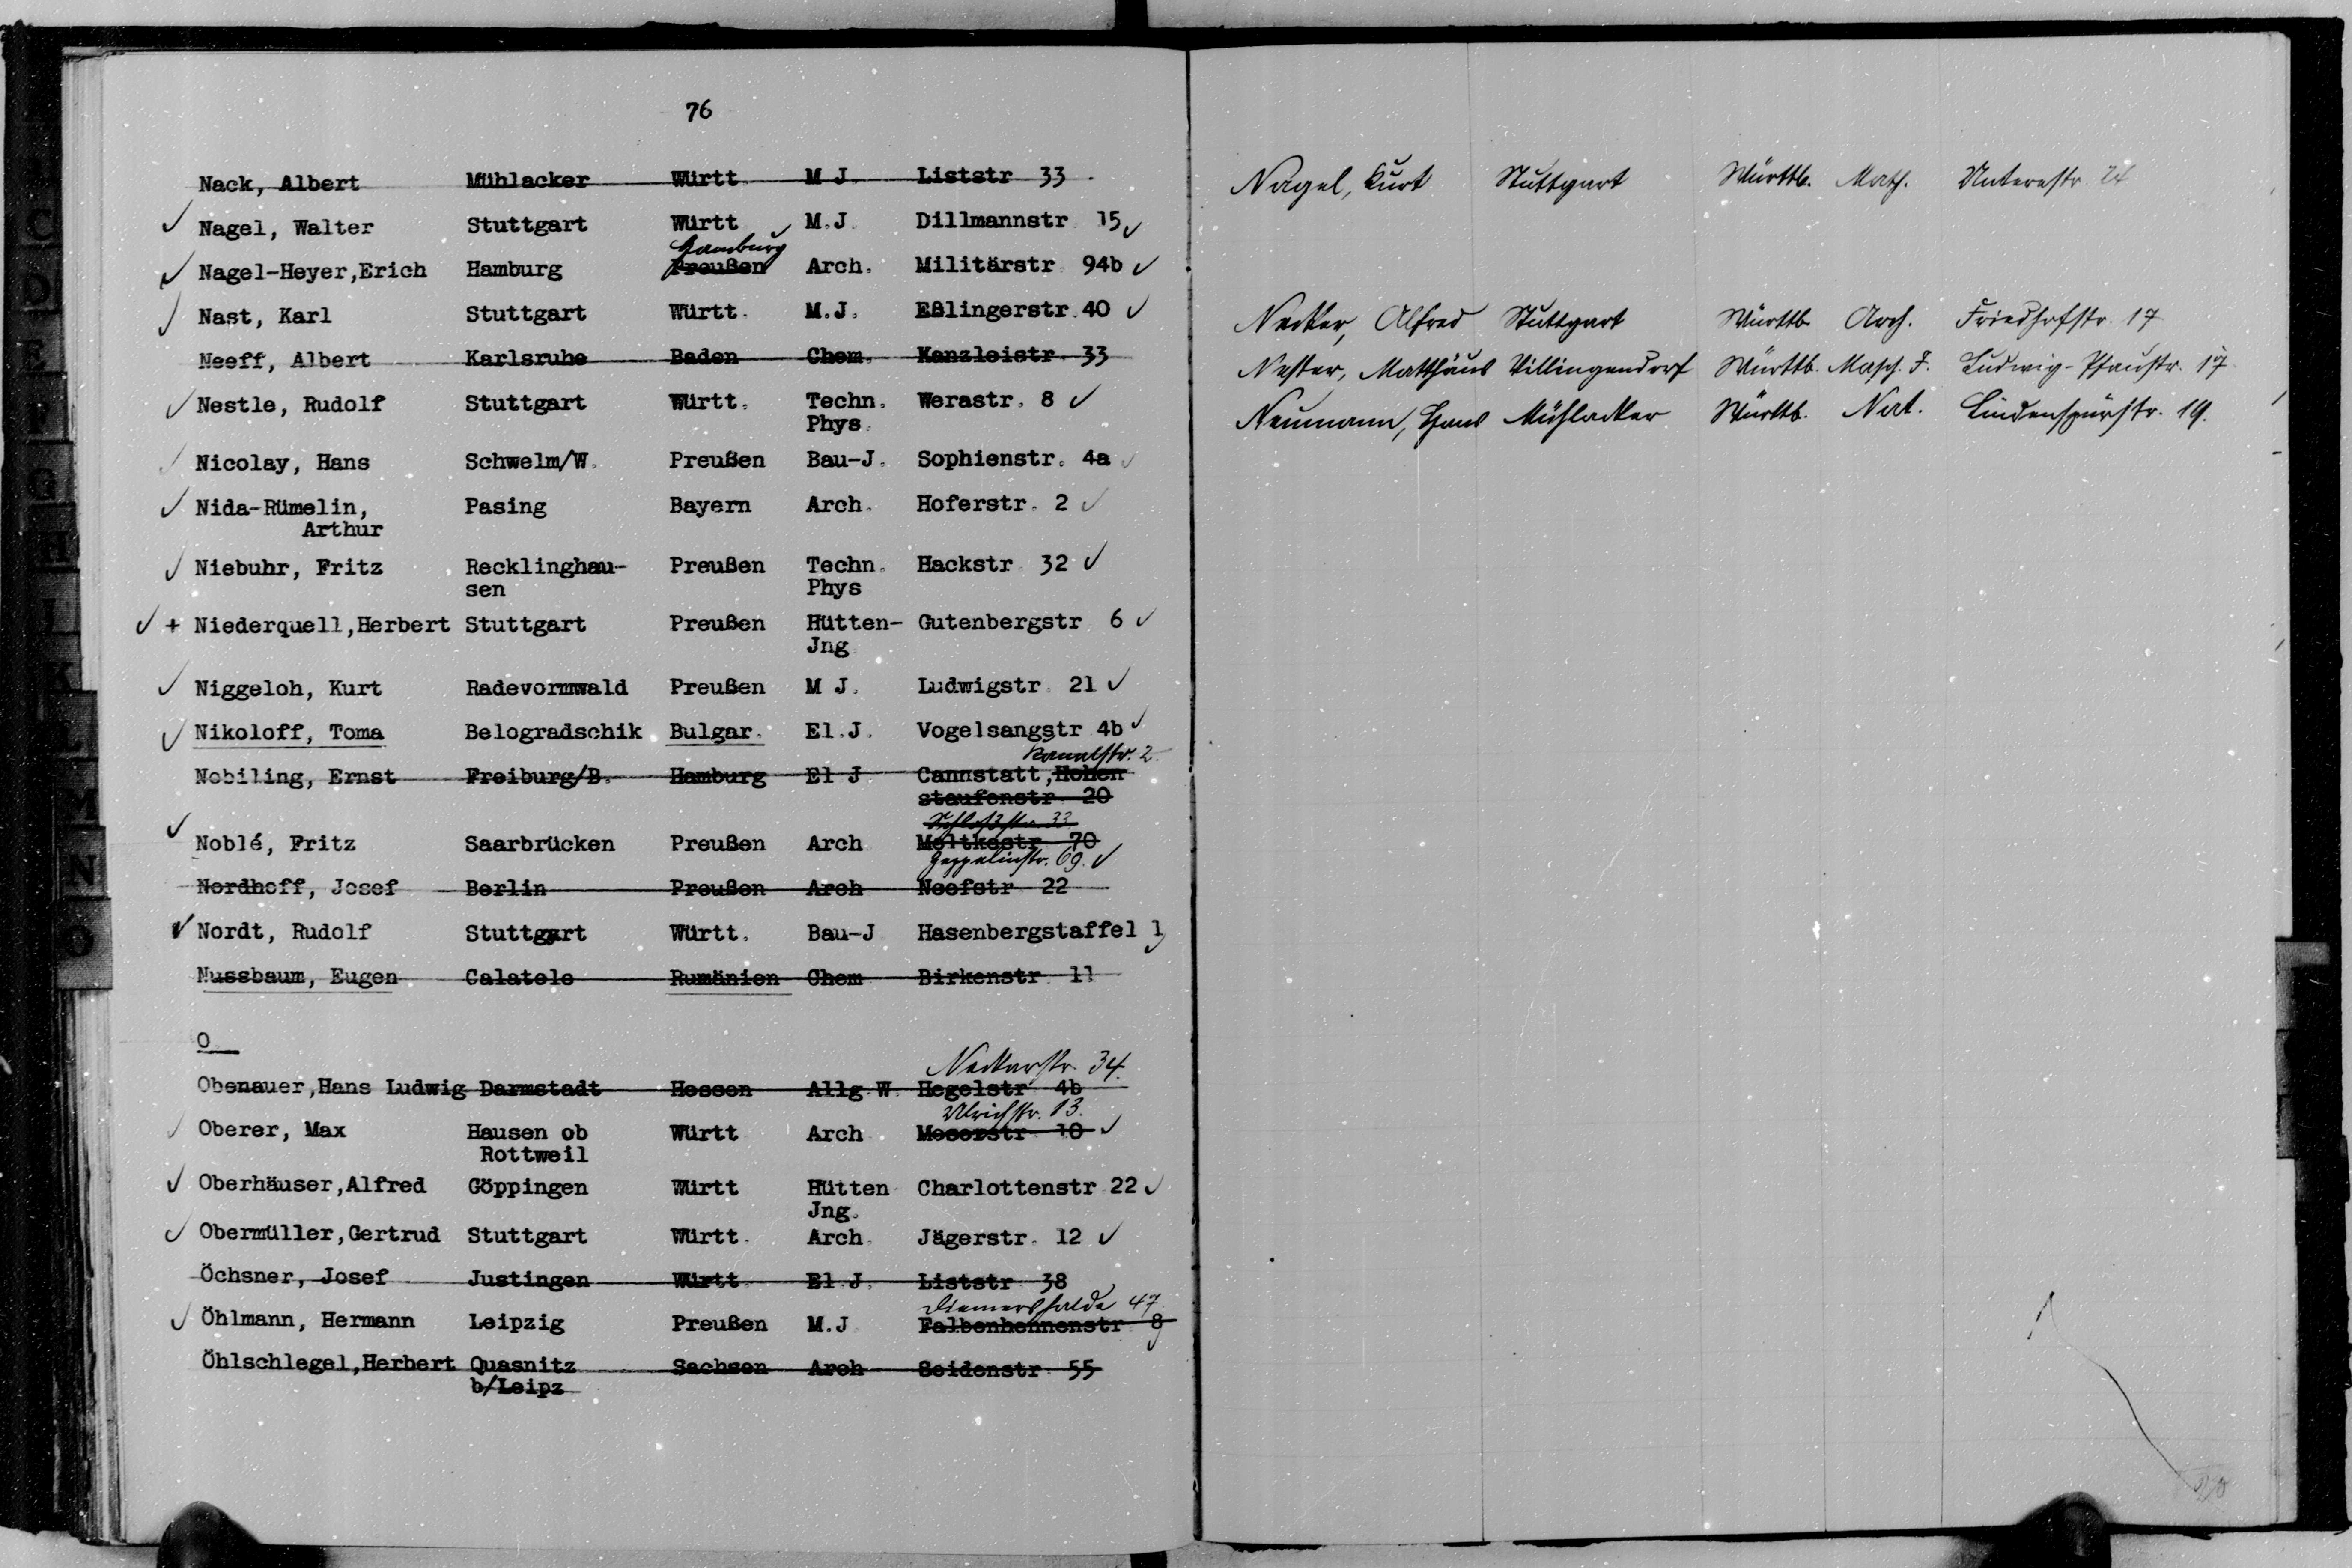 76
Nack, Albert Mühlacker Württ. M.J. Liststr. 33
Nagel, Walter Stuttgart Württ. M.J. Dillmannstr. 15
Hamburg
Nagel-Heyer,Erich Hamburg Preußen Arch. Militärstr. 94b
Nast, Karl Stuttgart Württ. M.J. Eßlingerstr. 40
Neeff, Albert Karlsruhe Baden Chem. Kanzleistr. 33
Nestle, Rudolf Stuttgart Württ. Techn. Werastr. 8
Phys.
Nicolay, Hans Schwelm/W. Preußen Bau-J. Sophienstr. 4a
Nida-Rümelin, Pasing Bayern Arch. Hoferstr. 2
Arthur
Niebuhr, Fritz Recklinghau- Preußen Techn. Hackstr. 32
sen Phys
+ Niederquell,Herbert Stuttgart Preußen Hütten- Gutenbergstr 6
Jng
Niggeloh, Kurt Radevormwald Preußen M J. Ludwigstr. 21
Nikoloff, Toma Belogradschik Bulgar. El.J. Vogelsangstr 4b
Kanalstr. 2
Nobiling, Ernst Freiburg/B. Hamburg El J Cannstatt,Hohen
staufenstr 20
Schloßstr. 33
Noblé, Fritz Saarbrücken Preußen Arch Moltkestr 70
Zeppelinstr. 69.
Nordhoff, Josef Berlin Preußen Arch Neefstr 22
Nordt, Rudolf Stuttgart Württ. Bau-J Hasenbergstaffel 1
Nussbaum, Eugen Calatele Rumänien Chem Birkenstr 11
O
Neckarstr. 34.
Obenauer,Hans Ludwig Darmstadt Hessen Allg.W. Hegelstr 4b
Ulrichstr. 13.
Oberer, Max Hausen ob Württ Arch Moserstr 10
Rottweil
Oberhäuser,Alfred Göppingen Württ Hütten Charlottenstr 22
Jng.
Obermüller,Gertrud Stuttgart Württ. Arch. Jägerstr. 12
Öchsner, Josef Justingen Württ El.J. Liststr 38
Diemershalde 47
Öhlmann, Hermann Leipzig Preußen M.J Falbenhennenstr 8
Öhlschlegel,Herbert Quasnitz Sachsen Arch Seidenstr 55
b/Leipz
Nagel, Kurt Stuttgart Württb. Math. Unterestr.
Necker, Alfred Stuttgart Württb Arch. Friedhofstr. 17
Nester, Matthäus Villingendorf Württb. Masch. J. Ludwig-Pfaustr. 17
Neumann, Hans Mühlacker Württb. Nat. Lindenspürstr. 19.
C
D
E
F
G
H
I
K
L
M
N
O